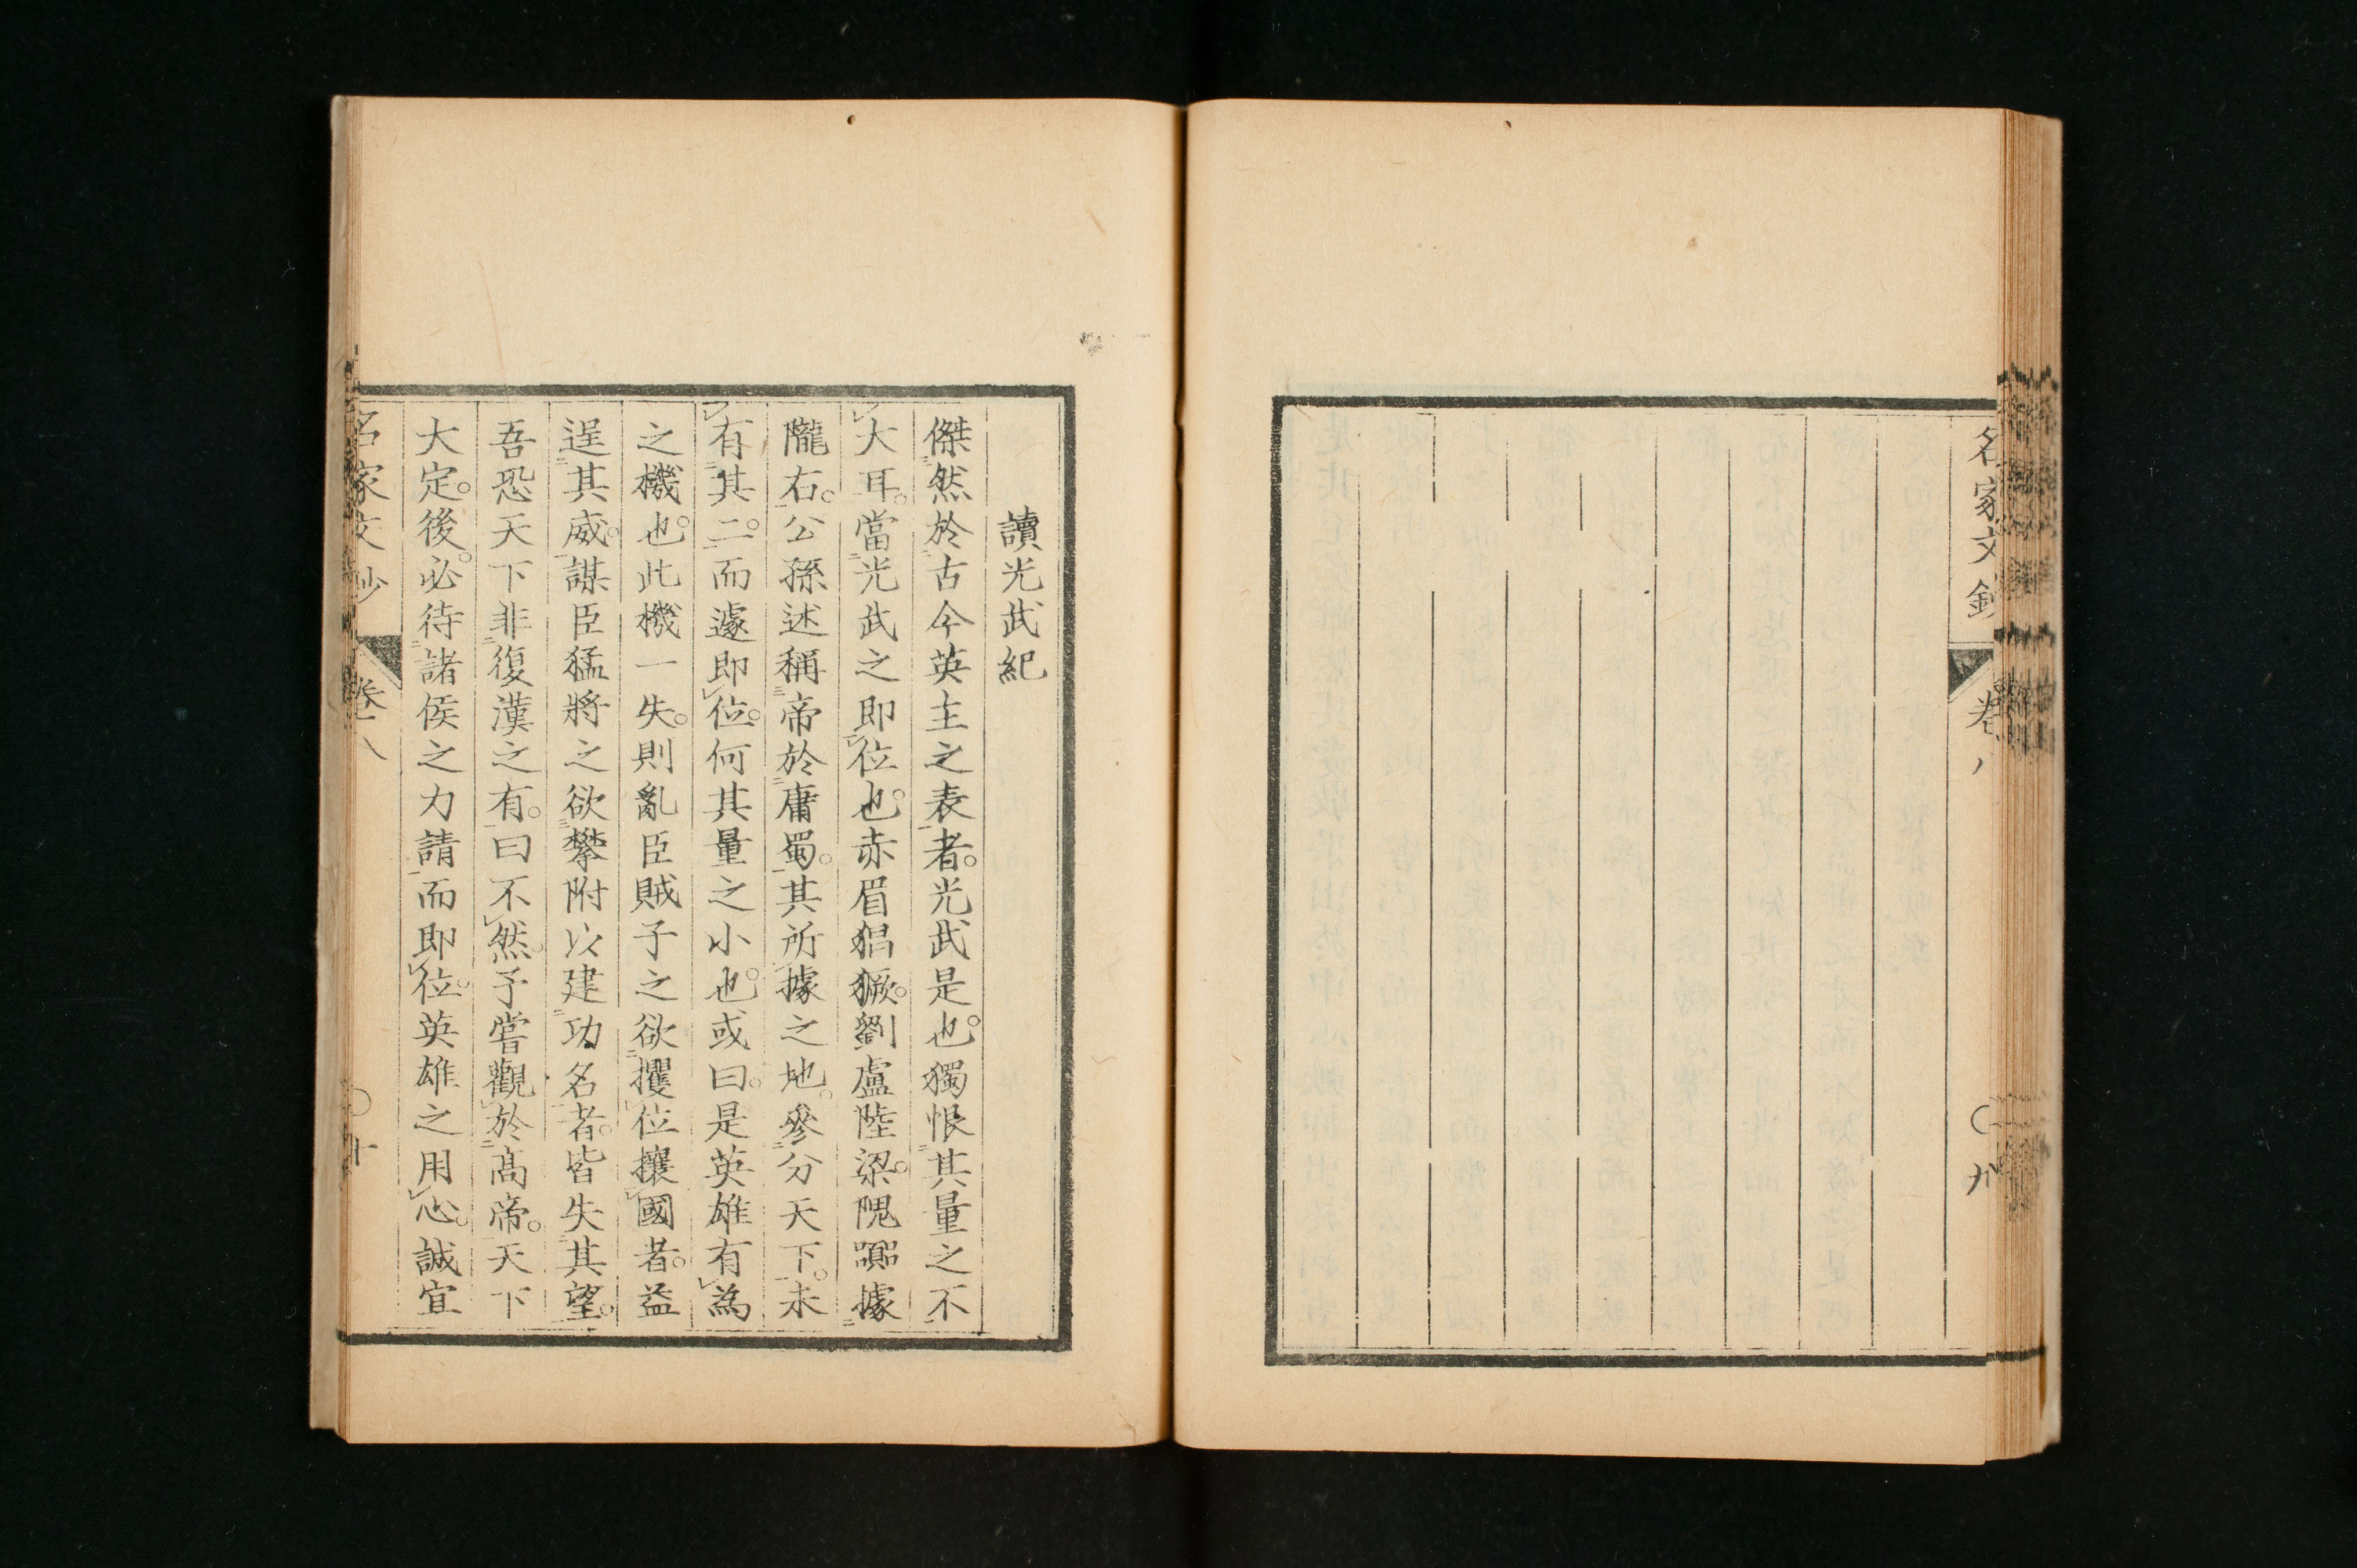 名家文鈔
卷八
〇九
讀光武紀
傑然於古今英主之表者。光武是也。獨恨其量之不
大耳。當光武之即位也。赤眉猖獗。劉盧陸梁。隗囂據
隴右。公孫述稱帝於庸蜀。其所據之地。參分天下。未
有其二。而遽即位。何其量之小也。或曰。是英雄有為
之機也。此機一失。則亂臣賊子之欲攫位攘國者。益
逞其威。謀臣猛將之欲攀附以建功名者。皆失其望。
吾恐天下非復漢之有。曰不然。予嘗觀於高帝。天下
大定。後。必待諸侯之力請而即位。英雄之用心。誠宜
名家文鈔
卷八
〇十